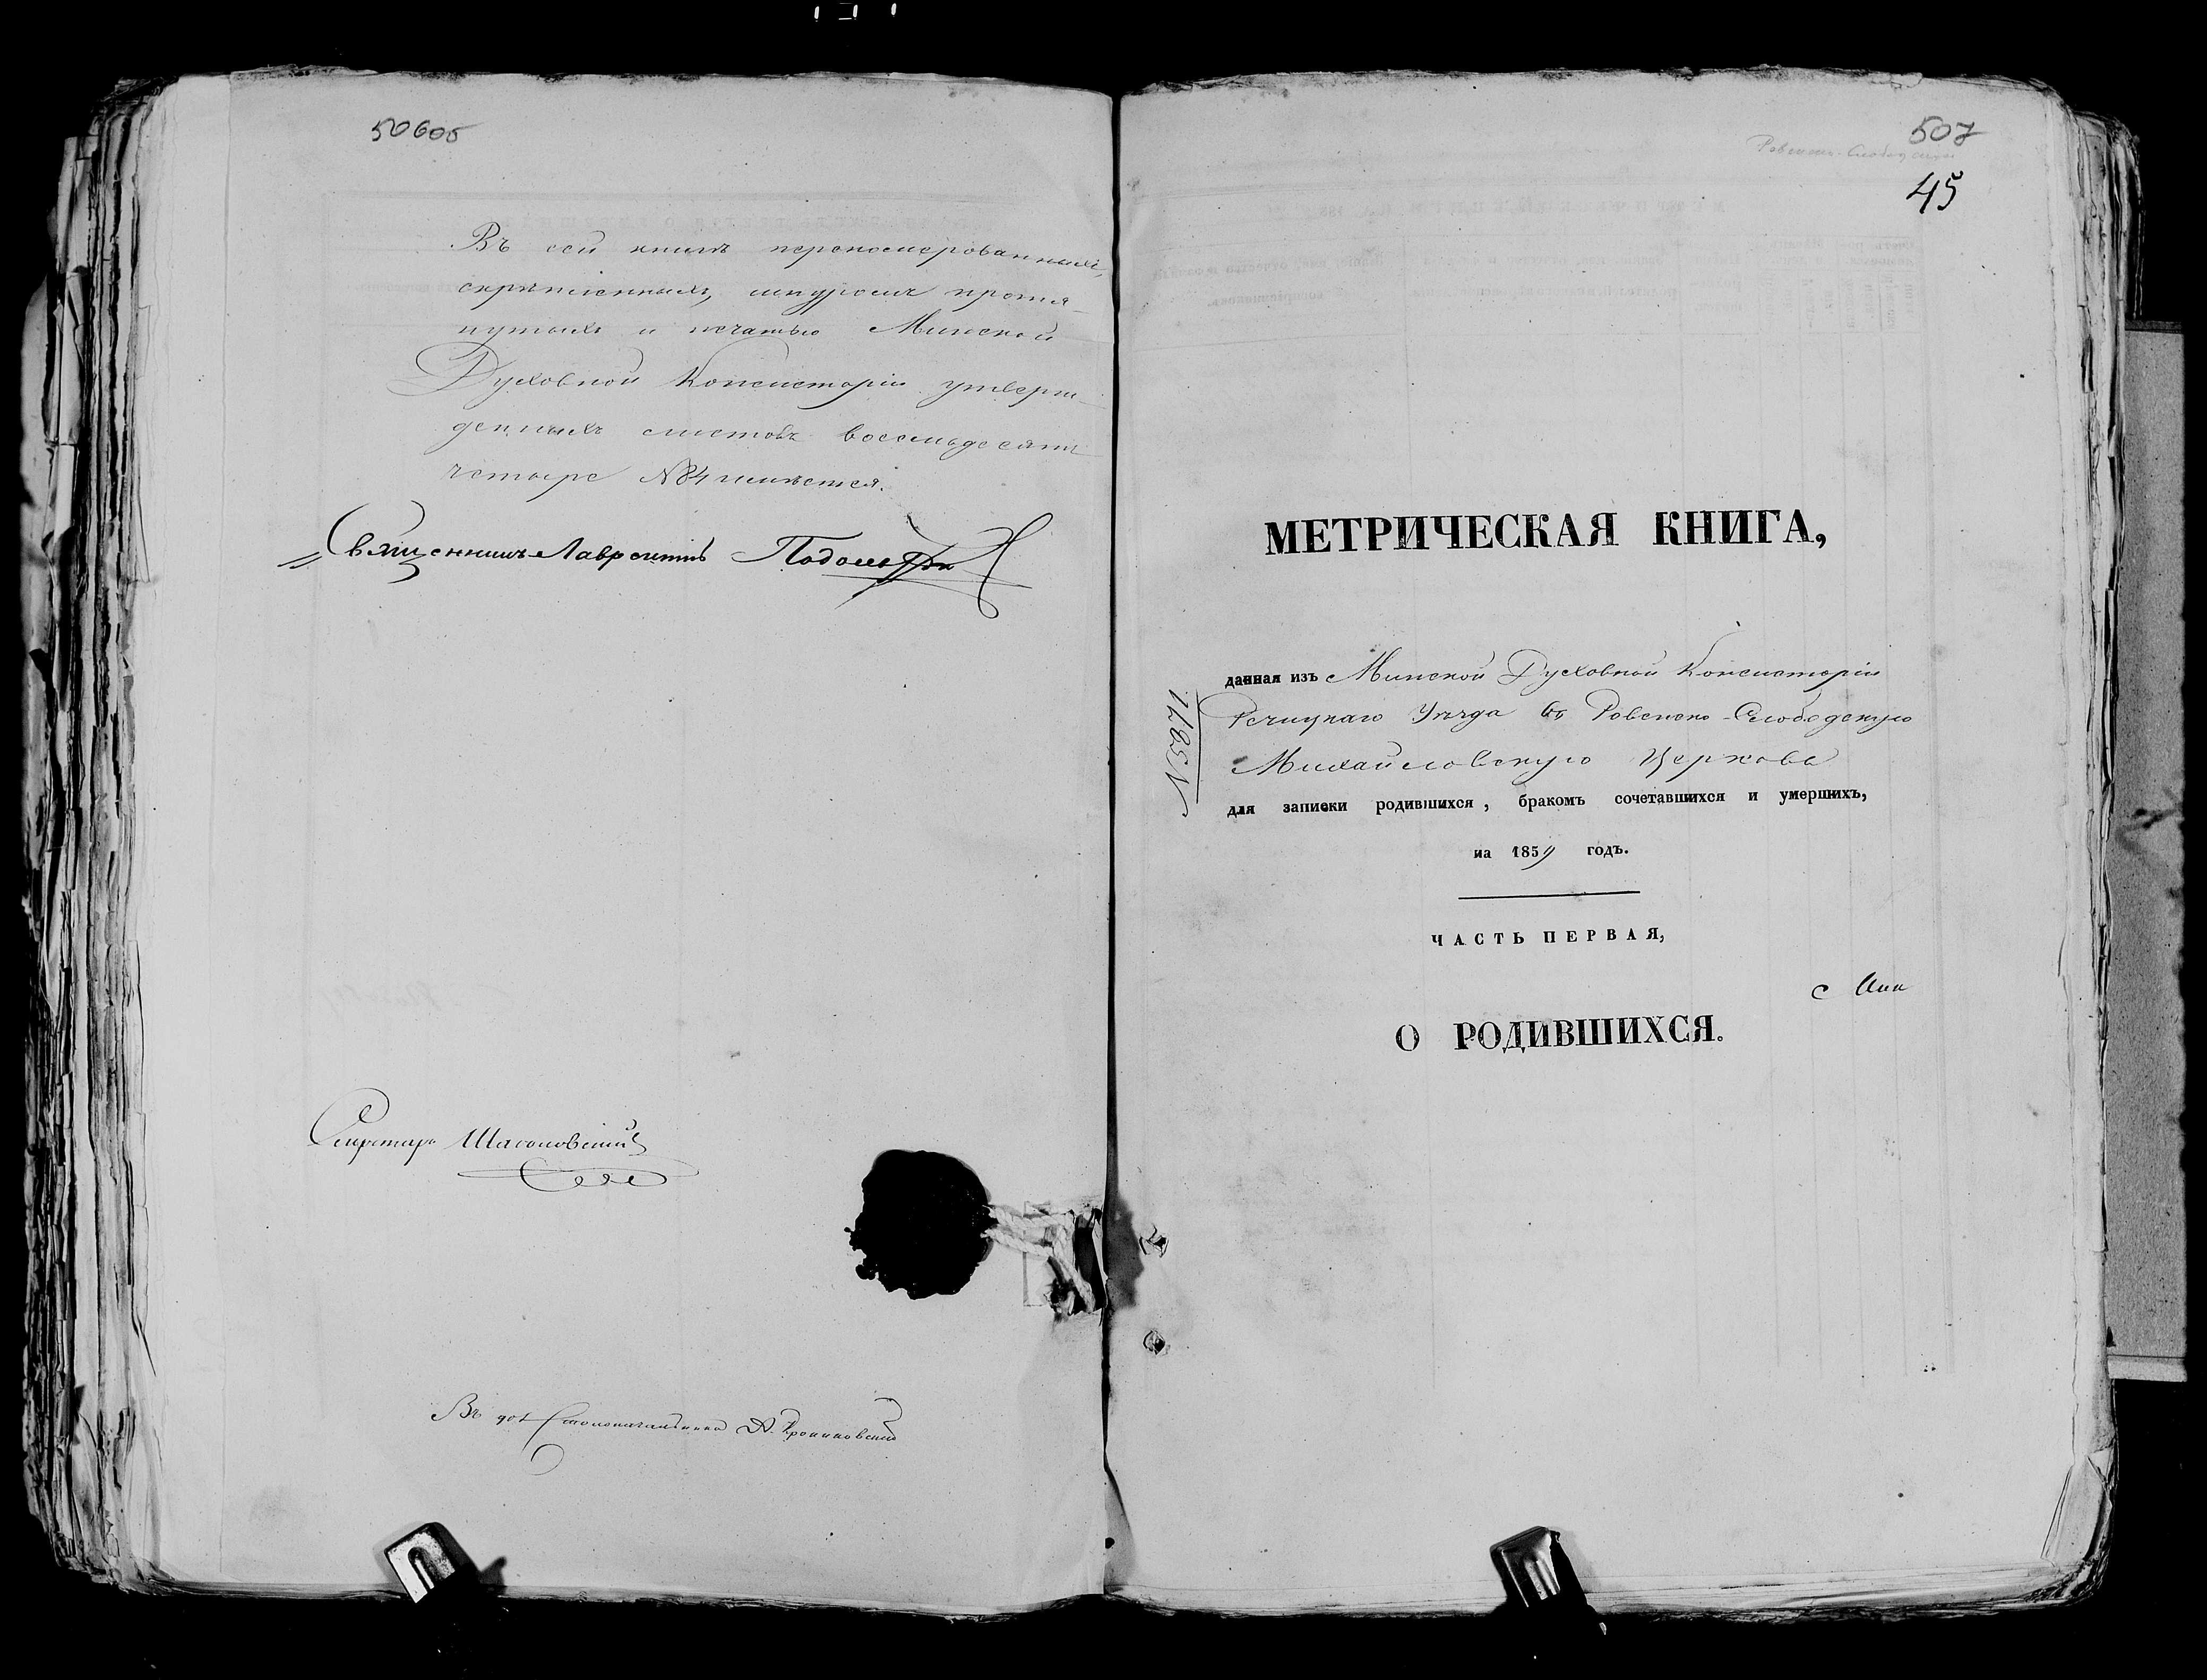 50606
Въ сей книгѣ перенумерованныхъ,
скрѣпленныхъ, шнуромъ протя-
нутыхъ и печатью Минской
Духовной Консисторіи утверж-
денныхъ листовъ восемьдесятъ
четыре №84 имѣется.
Священникъ Лаврентій
Секретарь
Въ дол Столоначальника А.
507
Ровенско-Слободская
45
МЕТРИЧЕСКАЯ КНИГА,
данная изъ Минской Духовной Консисторіи
Речицкаго Уѣзда въ Ровенско-Слободскую
Михайловскую Церковь
№5871
для записки родившихся, бракомъ сочетавшихся и умершихъ,
на 1859 годъ.
ЧАСТЬ ПЕРВАЯ,
О РОДИВШИХСЯ.